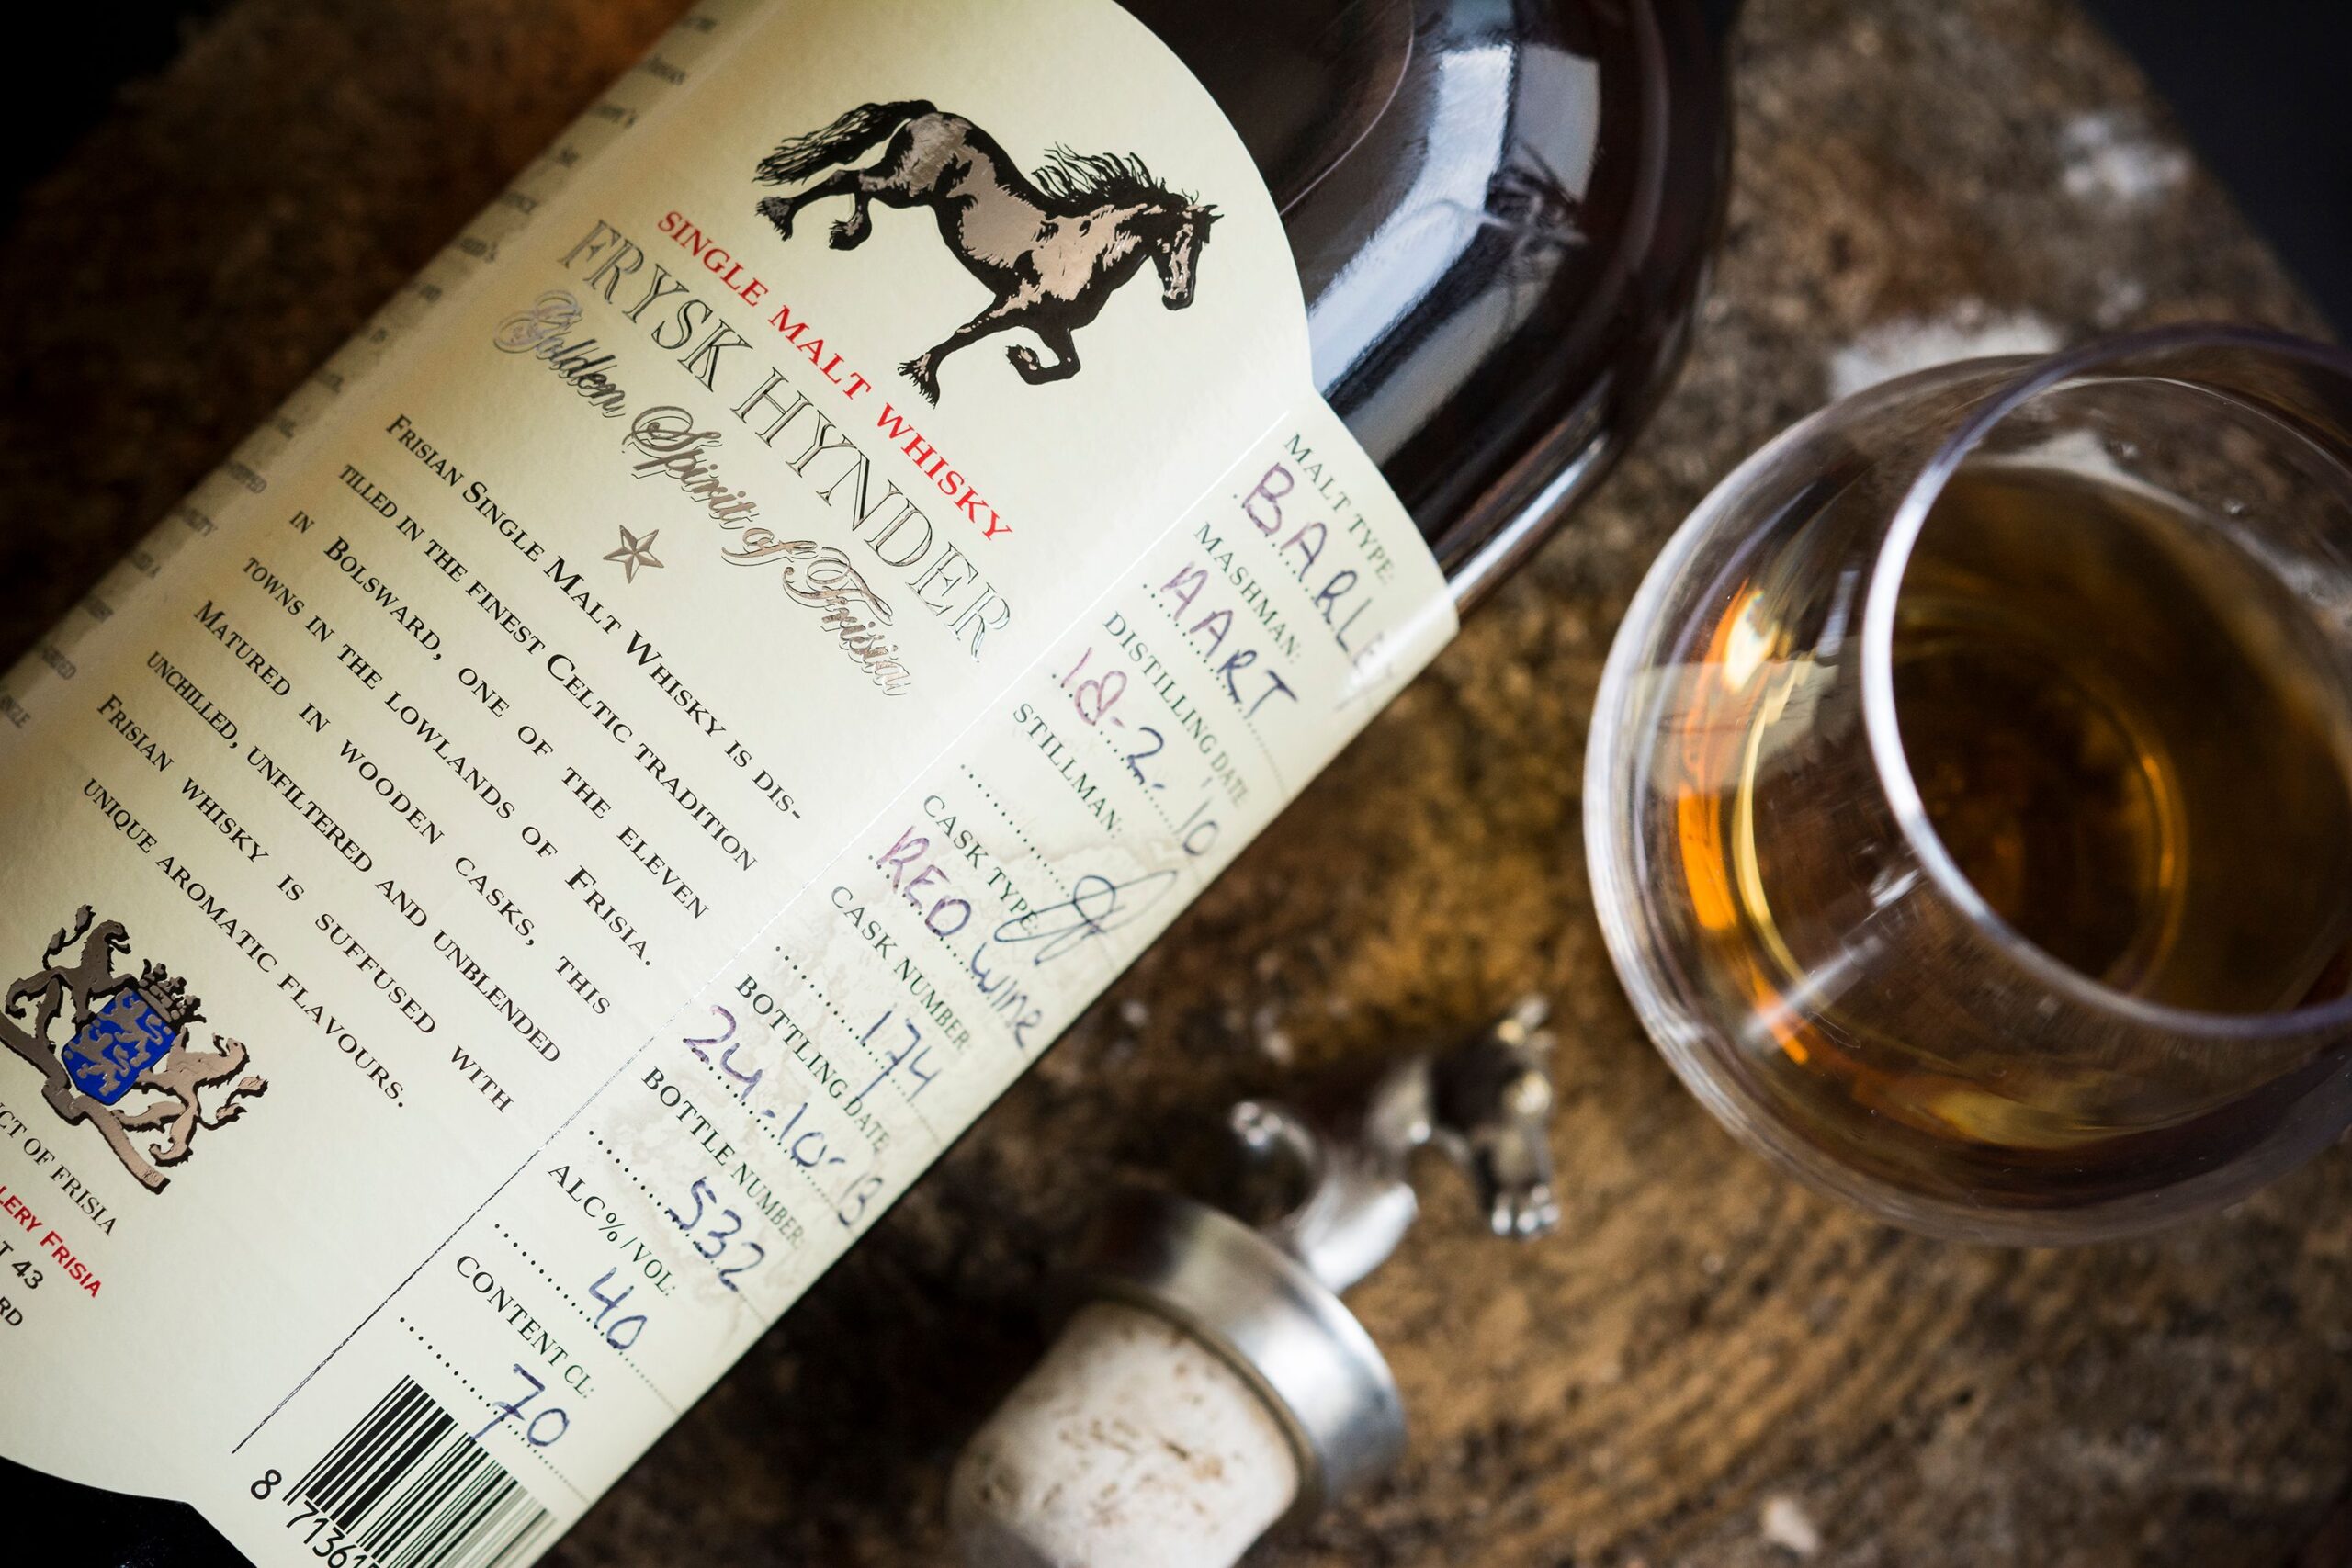 SINGLE MALT WHISKY
FRYSK HYNDER
Golden Spirit of Frisia
FRISIAN SINGLE MALT WHISKY IS DIS-
TILLED IN THE FINEST CELTIC TRADITION
IN BOLSWARD, ONE OF THE ELEVEN
TOWNS IN THE LOWLANDS OF FRISIA.
MATURED IN WOODEN CASKS, THIS
UNCHILLED, UNFILTERED AND UNBLENDED
FRISIAN WHISKY IS SUFFUSED WITH
UNIQUE AROMATIC FLAVOURS.
OF FRISIA
FRISIA
43
MALT TYPE:
BARLEY
MASHMAN:
AART
DISTILLING DATE:
18-2-'10
STILLMAN:
CASK TYPE:
RED wine
CASK NUMBER:
174
BOTTLING DATE:
24-10-13
BOTTLE NUMBER:
532
ALC%/VOL:
40
CONTENT CL:
70
8